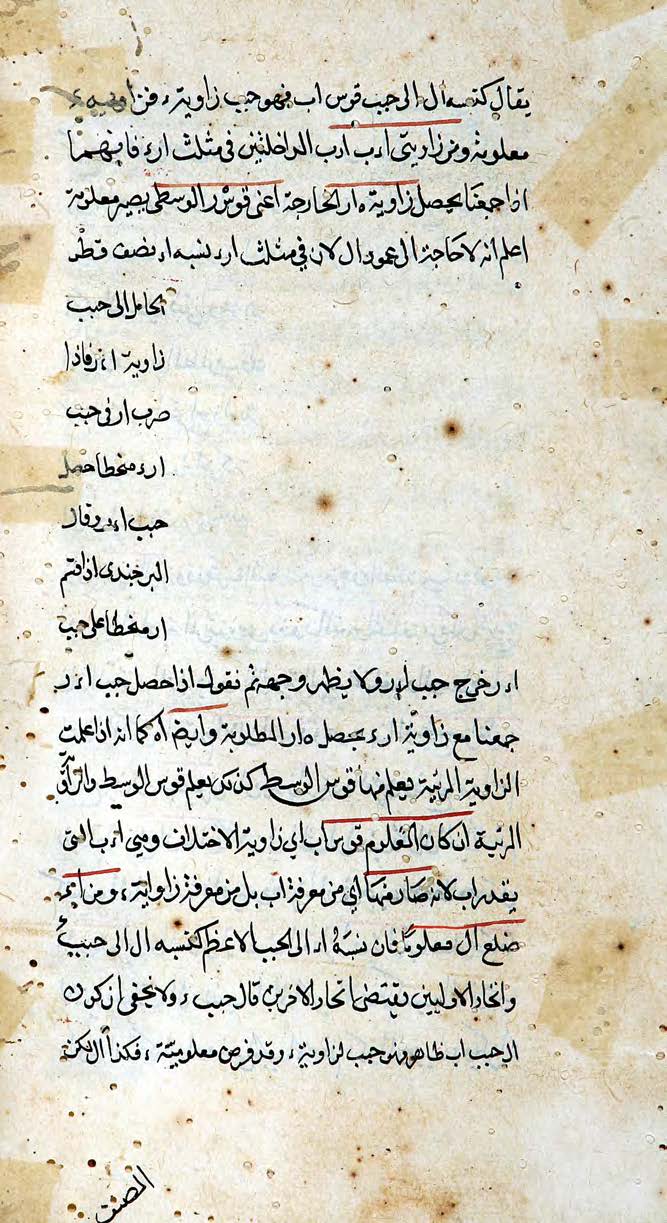 يقال كنسبة ال الى جيب قوس اب فهو جيب زاوية ء فزاوية ء
معلومة ومن زاويتى اءب ادب الداخلتين فى مثلث ارء فانهما
اذا جمعنا يحصل زاوية ه ار الخارجة اعنى قوس ر الوسطى يصير معلومة
اعلم انه لا حاجة الى عمود ال لان فى مثلث ارء نسبة اء نصف قطر
الحامل الى جيب
زاوية ارء فاذا
ضرب ار فى جيب
ارء منحطا حصل
جيب اءر وقال
البرجندى اذا قسم
ار منحطا على جيب
اءر خرج جيب ولا يظهر وجهه ثم نقول اذا حصل جيب اءر
جمعنا مع زاوية ارء يحصل ه ار المطلوبة وايضا كما انه اذا علمت
الزاوية المرئية يعلم منها قوس الوسط كذلك يعلم قوس الوسط والزاوية
المرئية ان كان المعلوم قوس اب اى زاوية الاختلاف وهى اءب التى
يقدر اب لانه صار منها اى من معرفة اب بل من معرفة زاوية ء ومن اء
ضلع ال معلوما فان نسبة اء الى الجيب الاعظم كنسبة ال الى جيب ء
واتحاد الاوليين يقتضى اتحاد الاخرين قال جيب ء ولا يخفى ان كون
ال جيب اب ظاهر وهو جيب لزاوية ء وقد فرض معلومية ء فكذا ال لكن
المصنف